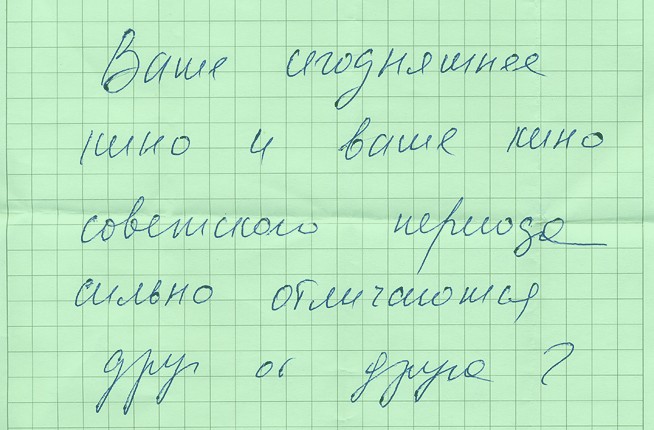 Ваше сегодняшнее
кино и ваше кино
советского периода
сильно отличаются
друг от друга?